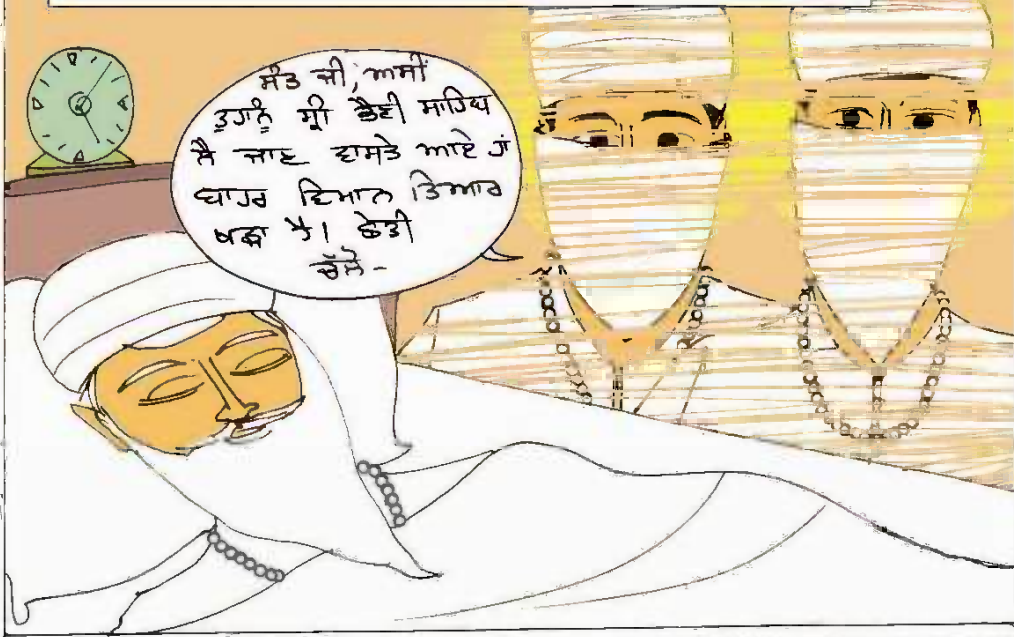 ਸੰਤ ਜੀ, ਅਸੀਂ
ਤੁਹਾਨੂੰ ਸ੍ਰੀ ਭੈਣੀ ਸਾਹਿਬ
ਲੈ ਜਾਣ ਵਾਸਤੇ ਆਏ ਹਾਂ
ਬਾਹਰ ਵਿਮਾਨ ਤਿਆਰ
ਖੜ੍ਹਾ ਹੈ। ਛੇਤੀ
ਚੱਲੋ-